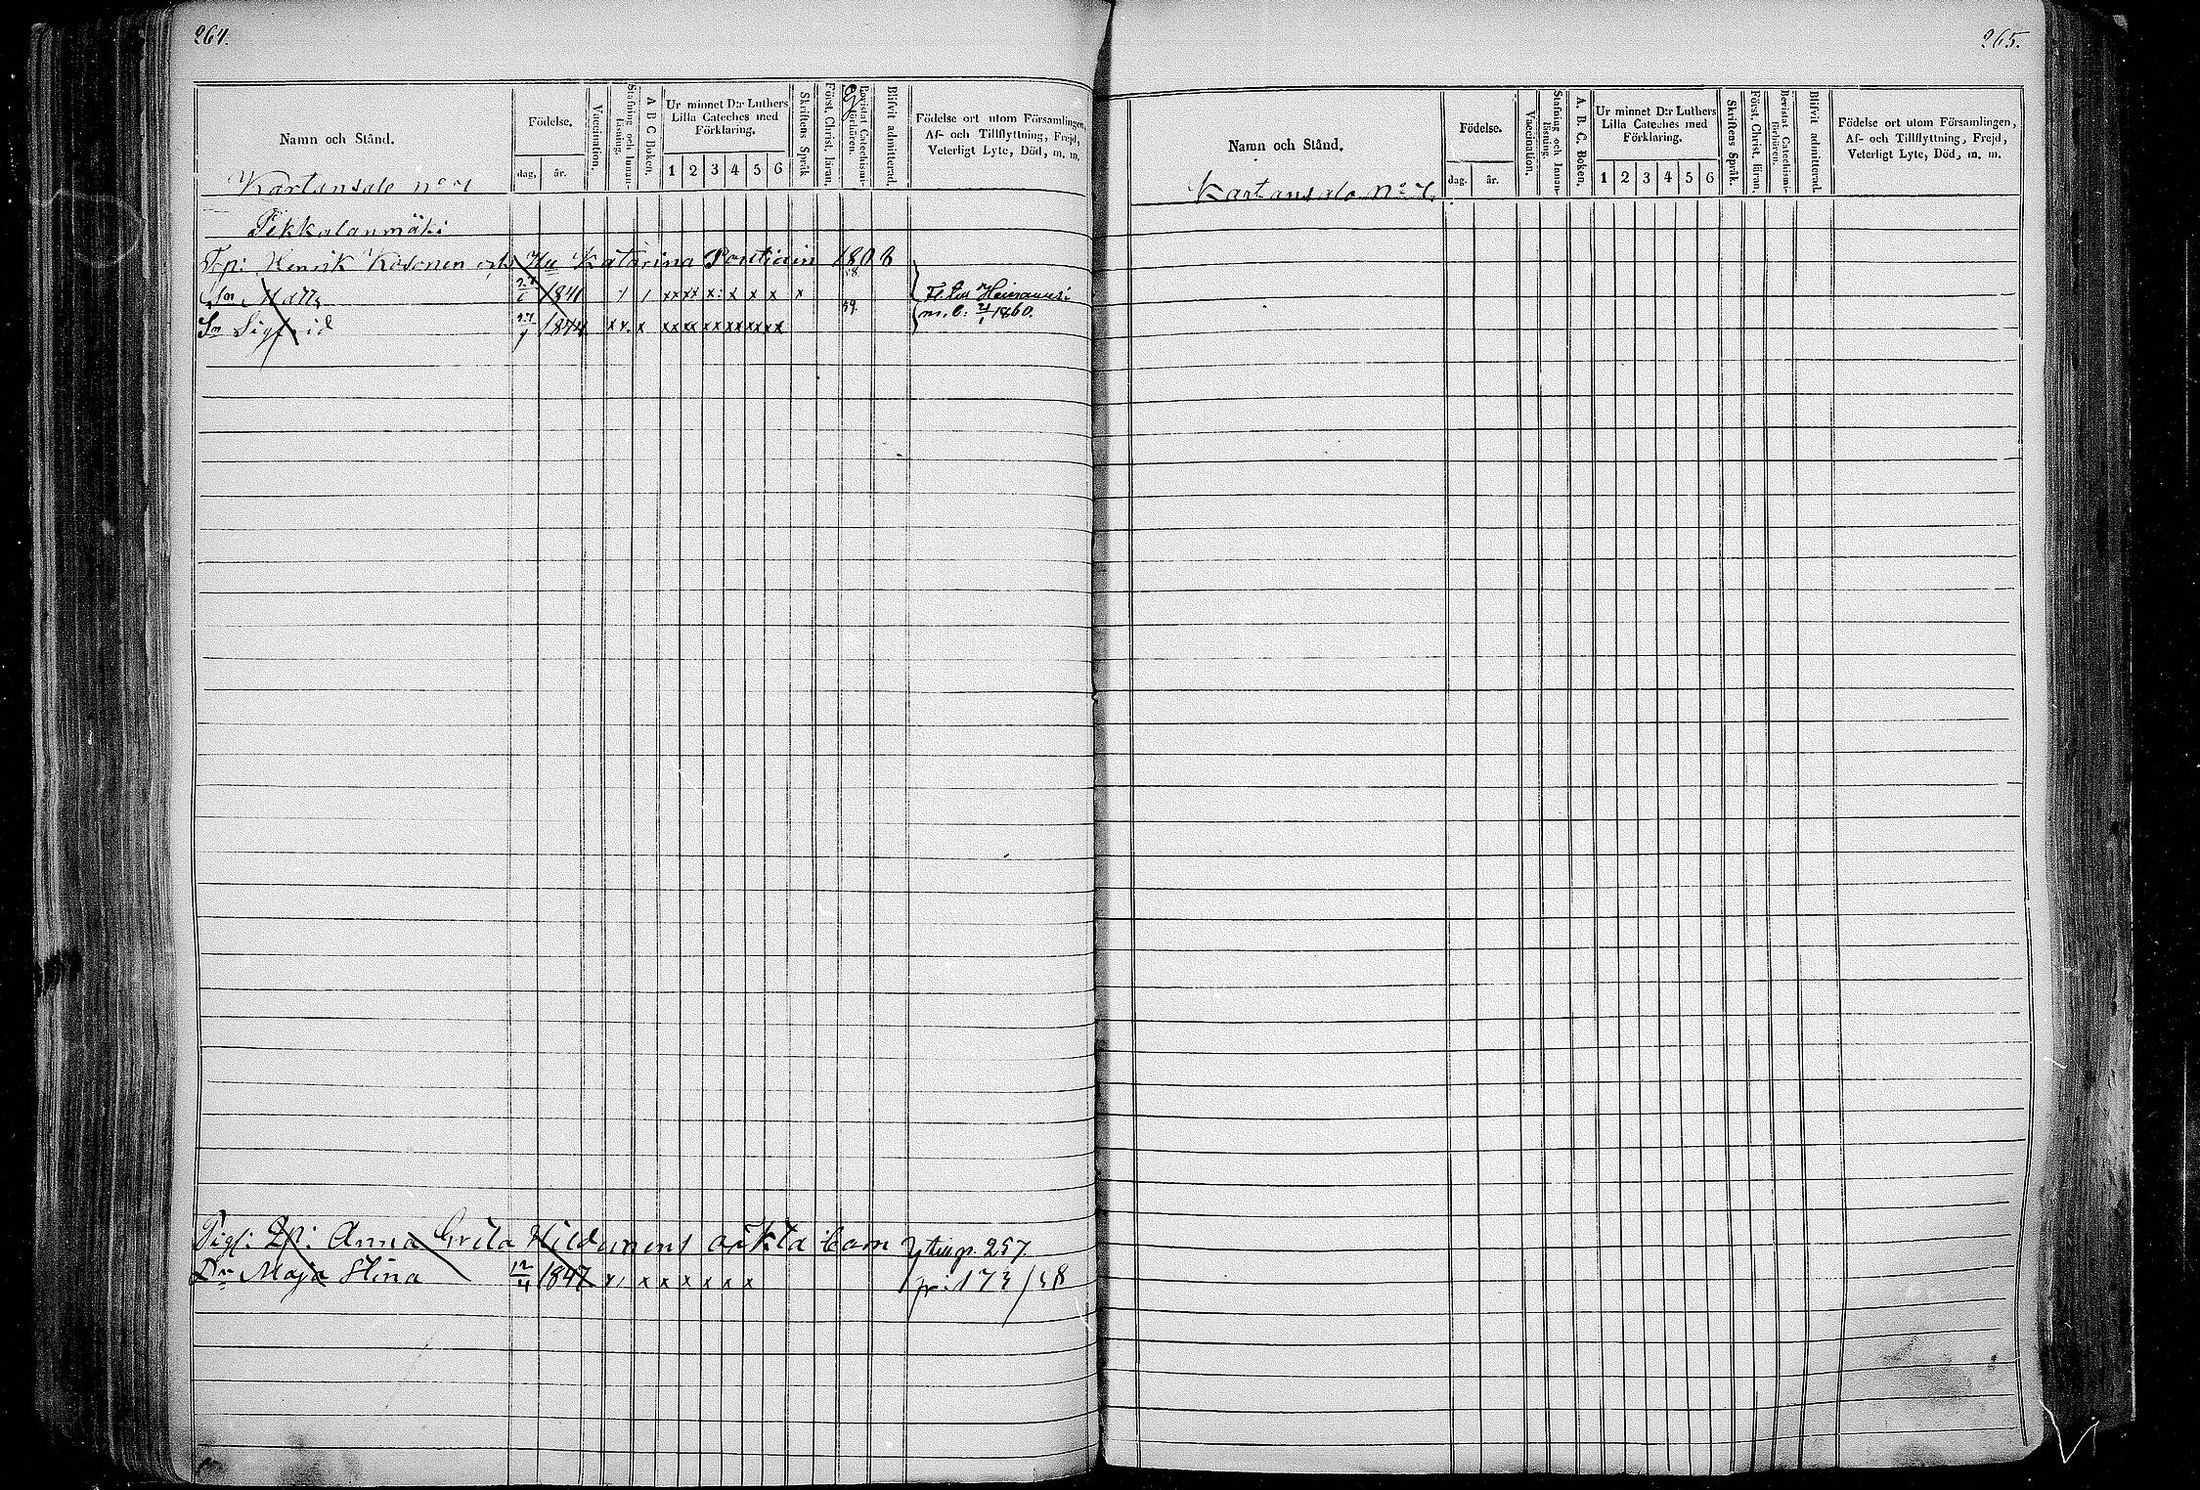 264.
Namn och Stånd.
Födelse.
dag.
år.
Vaccination.
Stafning och Innan-
läsning.
A B C Boken.
Ur minnet D:r Luthers
Lilla Cateches med
Förklaring.
1 2 3 4 5 6
Skriftens Språk
Först. Christ. läran.
Bevistat Catechismi-
förhören.
Blifvit admitterad.
Födelse ort utom Församlingen,
Af- och Tillflyttning, Frejd,
Veterligt Lyte, Död, m. m.
Kartansalo
Pekkalanmäki
Henrik Kosonen och Hu Katarina 180
58
Sn Matts 27/6 1841 x x x x x: x x x x
59.
m. b. 1860.
Sn Sigfrid 1844 x x. x xx xx xx xx xx xx
Anna Greta oäkta barn p. 257.
Dr Maja Stina 12/4 1847 x x x x x x x p: 173/58
265.
Namn och Stånd.
Födelse.
dag.
år.
Vaccination.
Stafning och Innan-
läsning.
A. B. C. Boken.
Ur minnet D:r Luthers
Lilla Cateches med
Förklaring.
1 2 3 4 5 6
Skriftens Språk.
Först. Christ. läran.
Bevistat Catechismi-
förhören.
Blifvit admitterad
Födelse ort utom Församlingen,
Af- och Tillflyttning, Frejd,
Veterligt Lyte, Död, m. m.
Kartansalo